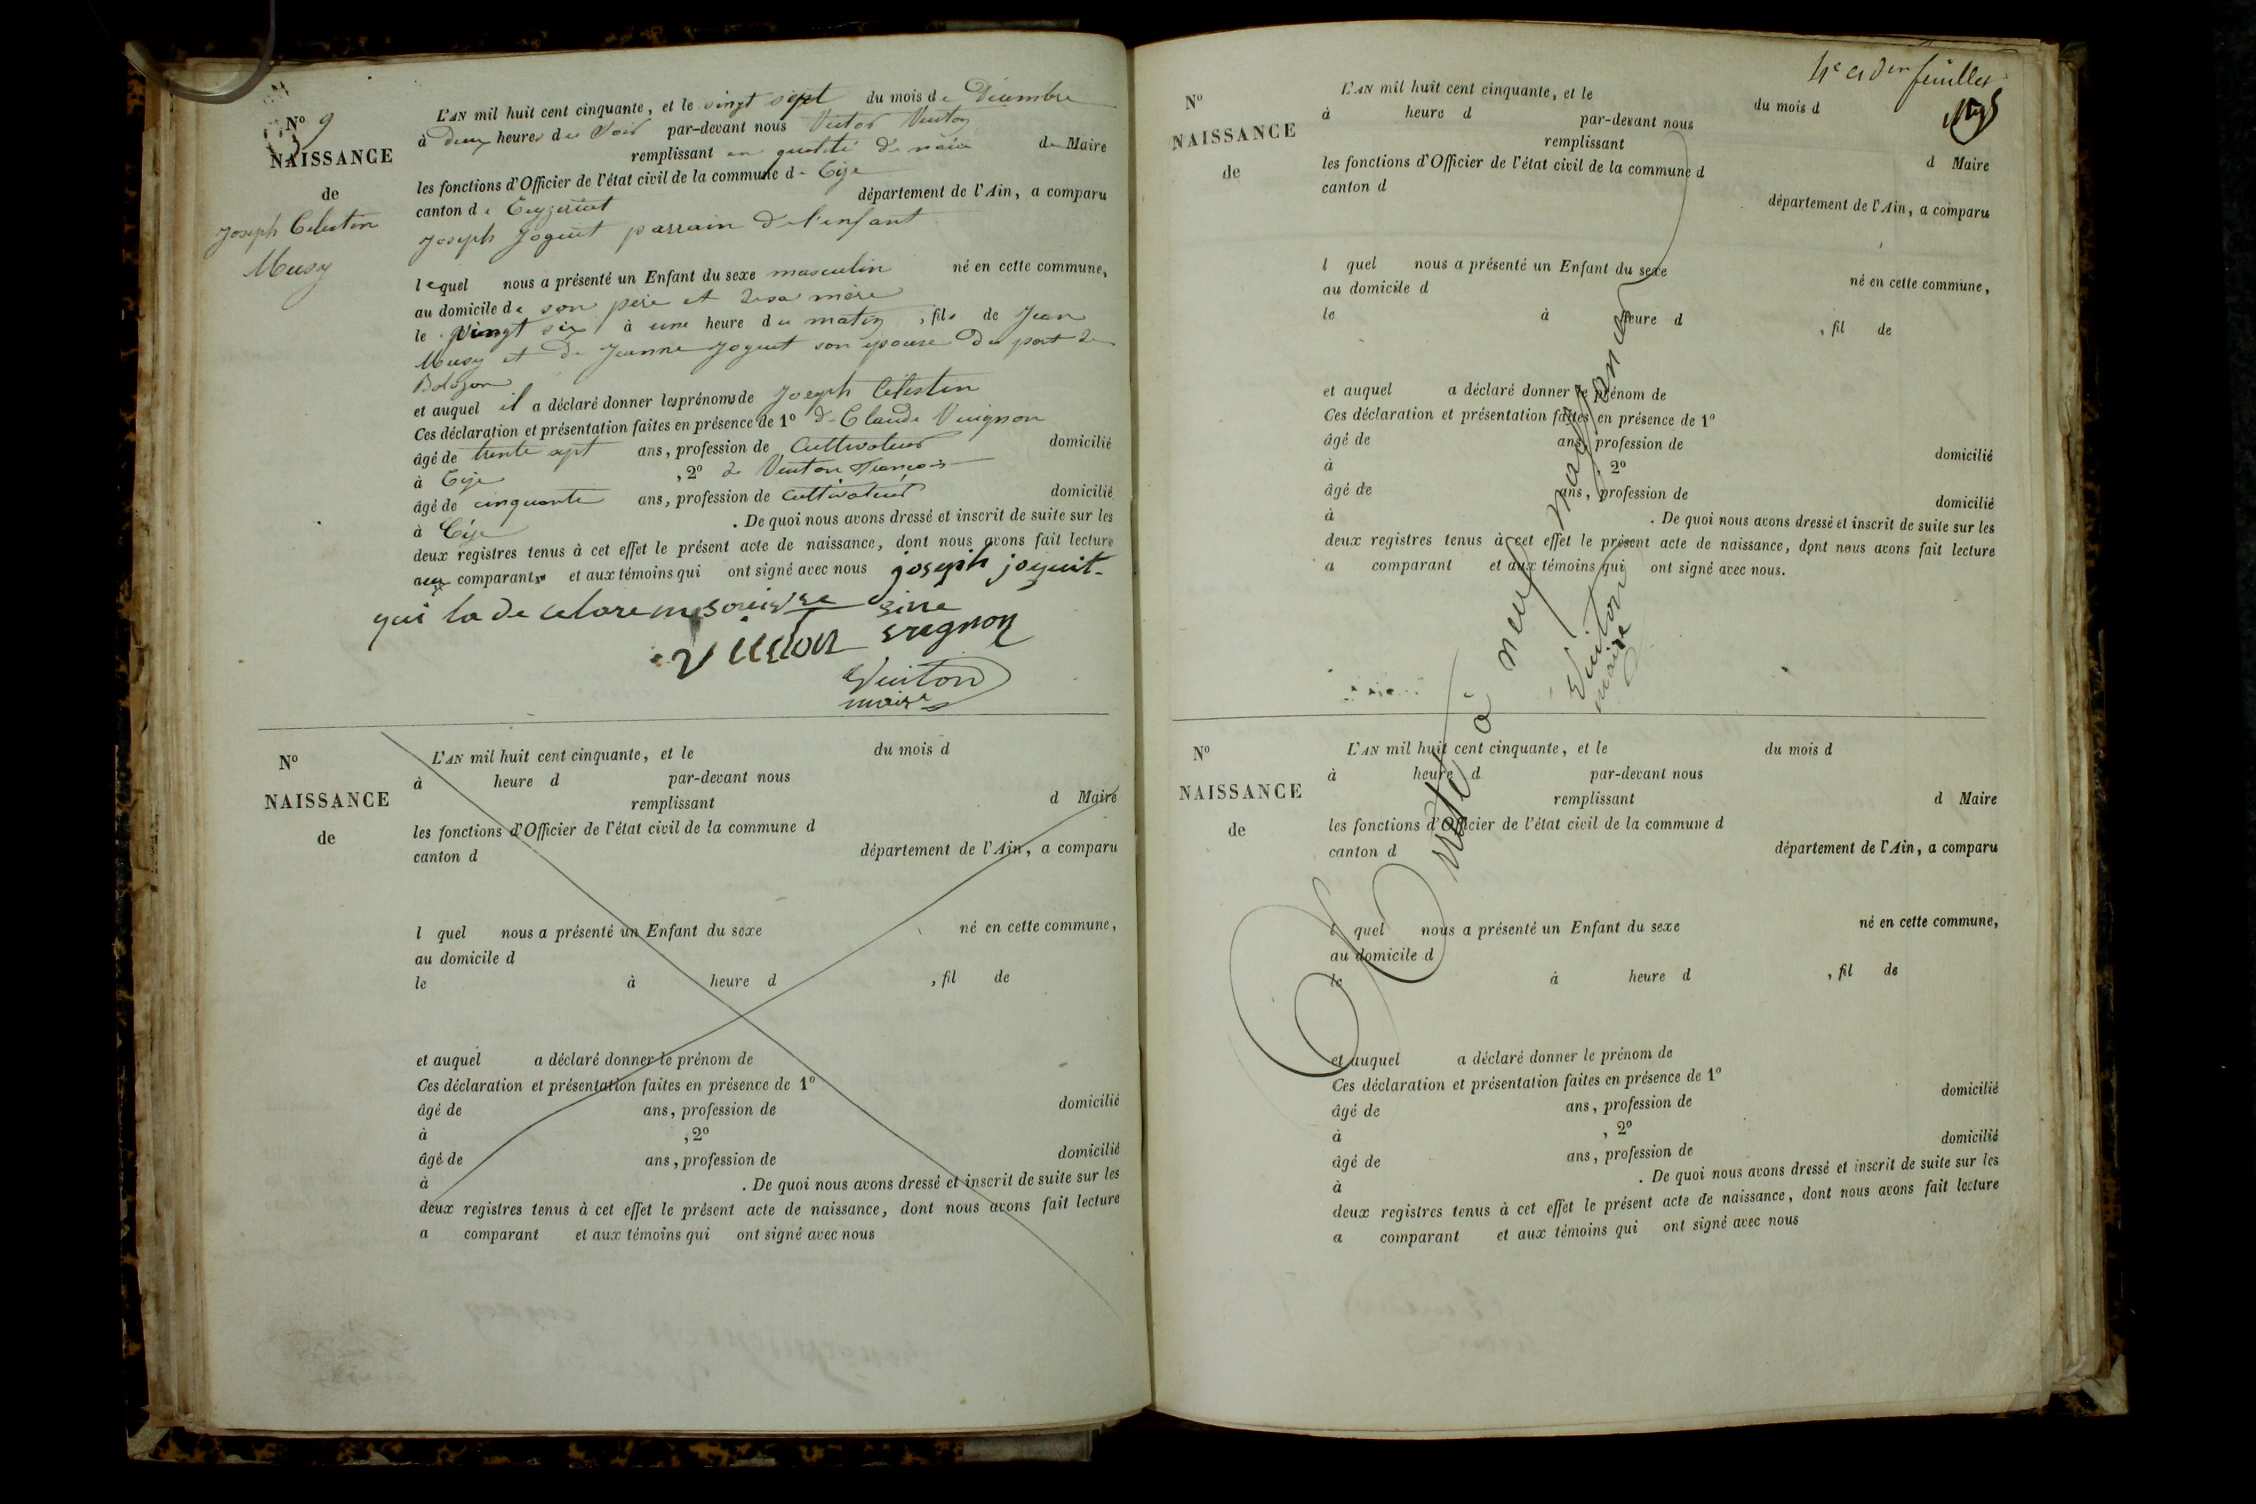 N° 9
NAISSANCE
de
Joseph Celestin
Musy
L'AN mil huit cent cinquante, et le vingt sept du mois de Décembre
à deux heures du soir par-devant nous Victor Vuiton
remplissant en qualité de maire de Maire
les fonctions d'Officier de l'état civil de la commune de Cize
canton de Ceyzeriat département de l'Ain, a comparu
Joseph Joguet parrain de l'enfant
lequel nous a présenté un Enfant du sexe masculin né en cette commune,
au domicile de son père et de sa mère
le vingt six à une heure du matin, fils de Jean
Musy et de Jeanne Joguet son épouse du port de
Bolozon
et auquel il a déclaré donner les prénoms de Joseph Célestin
Ces déclaration et présentation faites en présence de 1° de Claude Vuignon
âgé de trente sept ans, profession de Cultivateur domicilié
à Cize, 2° de Vuiton François
âgé de cinquante ans, profession de Cultivateur domicilié
à Cize. De quoi nous avons dressé et inscrit de suite sur les
deux registres tenus à cet effet le présent acte de naissance, dont nous avons fait lecture
aux comparants et aux témoins qui ont signé avec nous joseph joguit
qui la de
Vuiton
Vuiton
maire
N°
NAISSANCE
de
L'AN mil huit cent cinquante, et le du mois d
à heure d par-devant nous
remplissant d Maire
les fonctions d'Officier de l'état civil de la commune d
canton d département de l'Ain, a comparu
l quel nous a présenté un Enfant du sexe né en cette commune,
au domicile d
le à heure d, fil de
et auquel a déclaré donner le prénom de
Ces déclaration et présentation faites en présence de 1°
âgé de ans, profession de domicilié
à, 2°
âgé de ans, profession de domicilié
à. De quoi nous avons dressé et inscrit de suite sur les
deux registres tenus à cet effet le présent acte de naissance, dont nous avons fait lecture
a comparant et aux témoins qui ont signé avec nous
4e et der feuillet
N°
NAISSANCE
de
L'AN mil huit cent cinquante, et le du mois d
à heure d par-devant nous
remplissant d Maire
les fonctions d'Officier de l'état civil de la commune d
canton d département de l'Ain, a comparu
l quel nous a présenté un Enfant du sexe né en cette commune,
au domicile d
le à heure d, fil de
et auquel a déclaré donner le prénom de
Ces déclaration et présentation faites en présence de 1°
âgé de ans, profession de domicilié
à 2°
âgé de ans, profession de domicilié
à. De quoi nous avons dressé et inscrit de suite sur les
deux registres tenus à cet effet le présent acte de naissance, dont nous avons fait lecture
a comparant et aux témoins qui ont signé avec nous.
Arrêté à neuf naissances
Vuiton
maire
N°
NAISSANCE
de
L'AN mil huit cent cinquante, et le du mois d
à heure d par-devant nous
remplissant d Maire
les fonctions d'Officier de l'état civil de la commune d
canton d département de l'Ain, a comparu
l quel nous a présenté un Enfant du sexe né en cette commune,
au domicile d
le à heure d, fil de
et auquel a déclaré donner le prénom de
Ces déclaration et présentation faites en présence de 1°
âgé de ans, profession de domicilié
à, 2°
âgé de ans, profession de domicilié
à. De quoi nous avons dressé et inscrit de suite sur les
deux registres tenus à cet effet le présent acte de naissance, dont nous avons fait lecture
a comparant et aux témoins qui ont signé avec nous